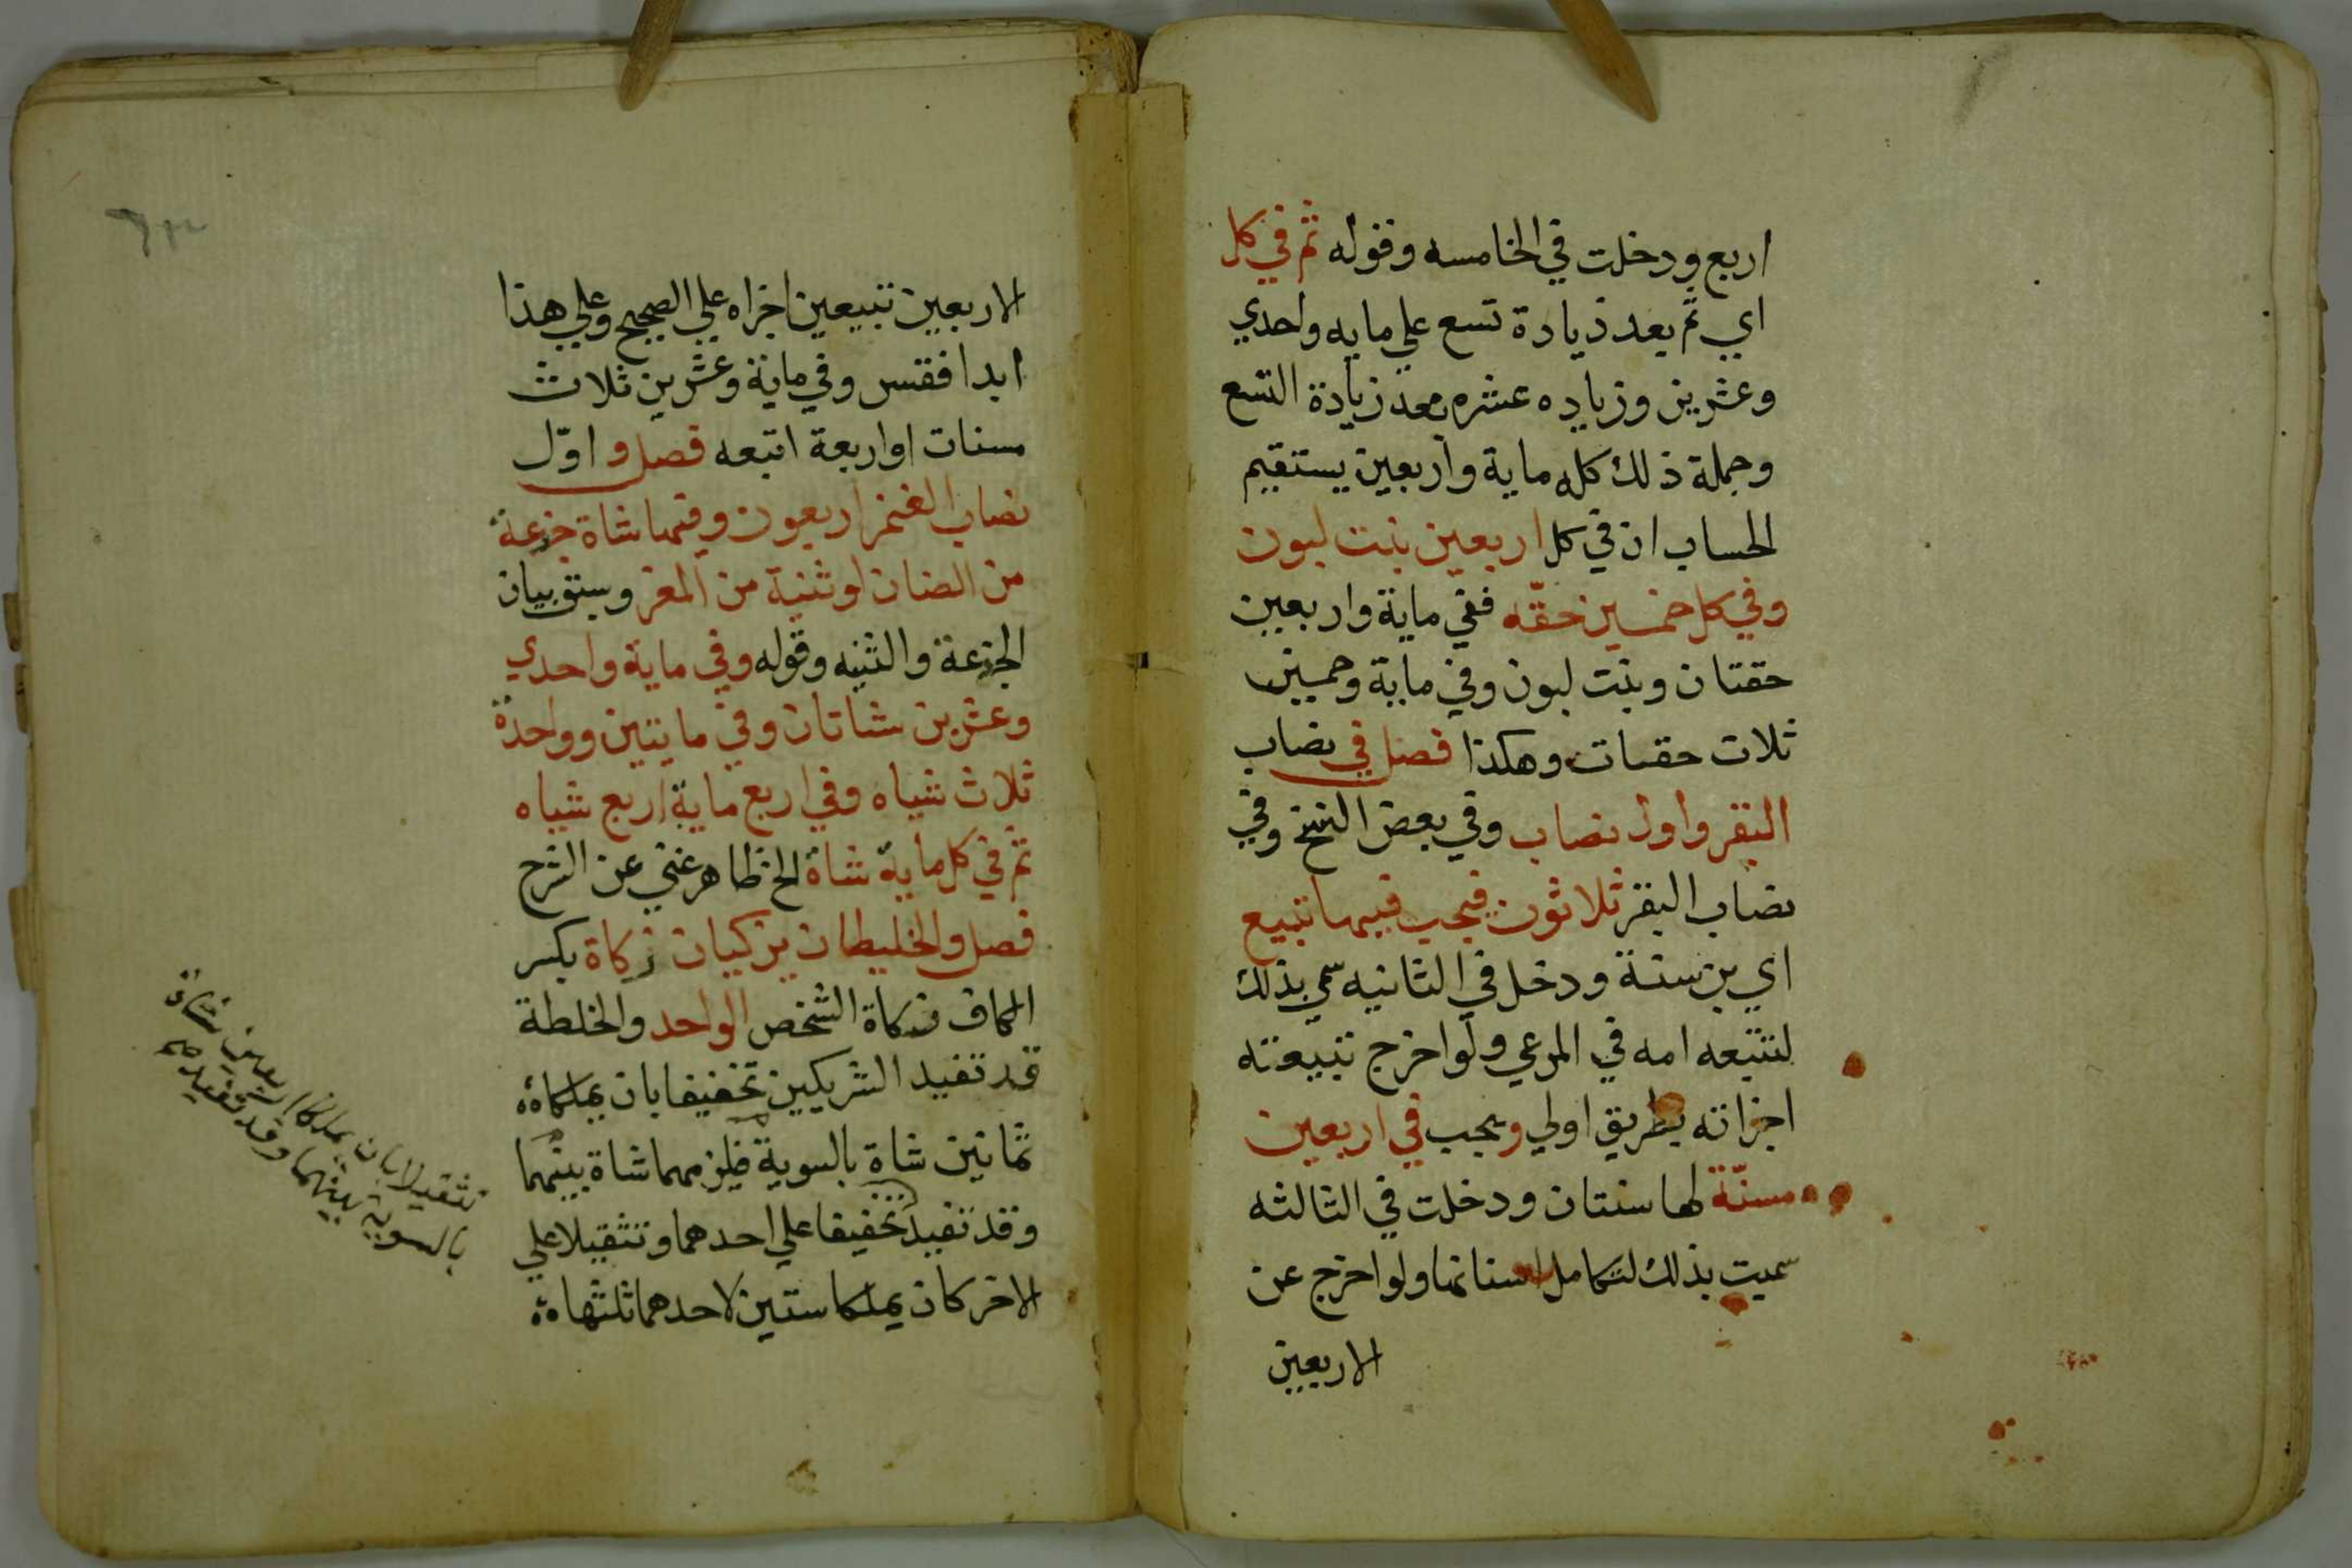 اربع ودخلت في الخامسه وقوله ثم في كل
اي ثم بعد زيادة تسع علي مايه واحدي
وعشرين وزياده عشره بعد زيادة التسع
وجملة ذلك كله ماية واربعين يستقيم
الحساب ان في كل اربعين بنت لبون
وفي كل خمسين حقّه ففي ماية واربعين
حقتان وبنت لبون وفي ماية وخمسين
ثلاث حقات وهكذا فصل في نصاب
البقر واول نصاب وفي بعض النسخ وفي
نصاب البقر ثلاثون فيجب فيها تبيع
اي بن سنة ودخل في الثانيه سمي بذلك
لتتبعه امه في المرعي ولو اخرج تبيعته
اجزاته بطريق اولي ويجب في اربعين
مسنّة لها سنتان ودخلت في الثالثه
سميت بذلك لتكامل اسنانها ولو اخرج عن
الاربعين
الاربعين تبيعين اجزاه علي الصحيح وعلي هذا
ابدا فقس وفي ماية وعشرين ثلاث
مسنات او اربعة اتبعه فصل واوّل
نصاب الغنم اربعون وفيها شاة جزعة
من الضان او ثنية من المعز وسبق بيان
الجزعة والثنيه وقوله وفي ماية واحدي
وعشرين شاتان وفي مايتين وواحدة
ثلاث شياه وفي اربع ماية اربع شياه
ثم في كل ماية شاة الخ ظاهر غني عن الشرح
فصل والخليطان يزكيان زكاة بكسر
الكاف زكاة الشخص الواحد والخلطة
قد تفيد الشريكين تخفيفا بان يملكاه
ثمانين شاة بالسوية فيلزمهما شاة بينهما
وقد تفيد تخفيفا علي احدهما وتثقيلا علي
الاخر كان يملكا ستين لاحدهما ثلثهاه
تثقيلا بان يملكا اربعين شاة
بالسوية بينهما وقد تفيدهم